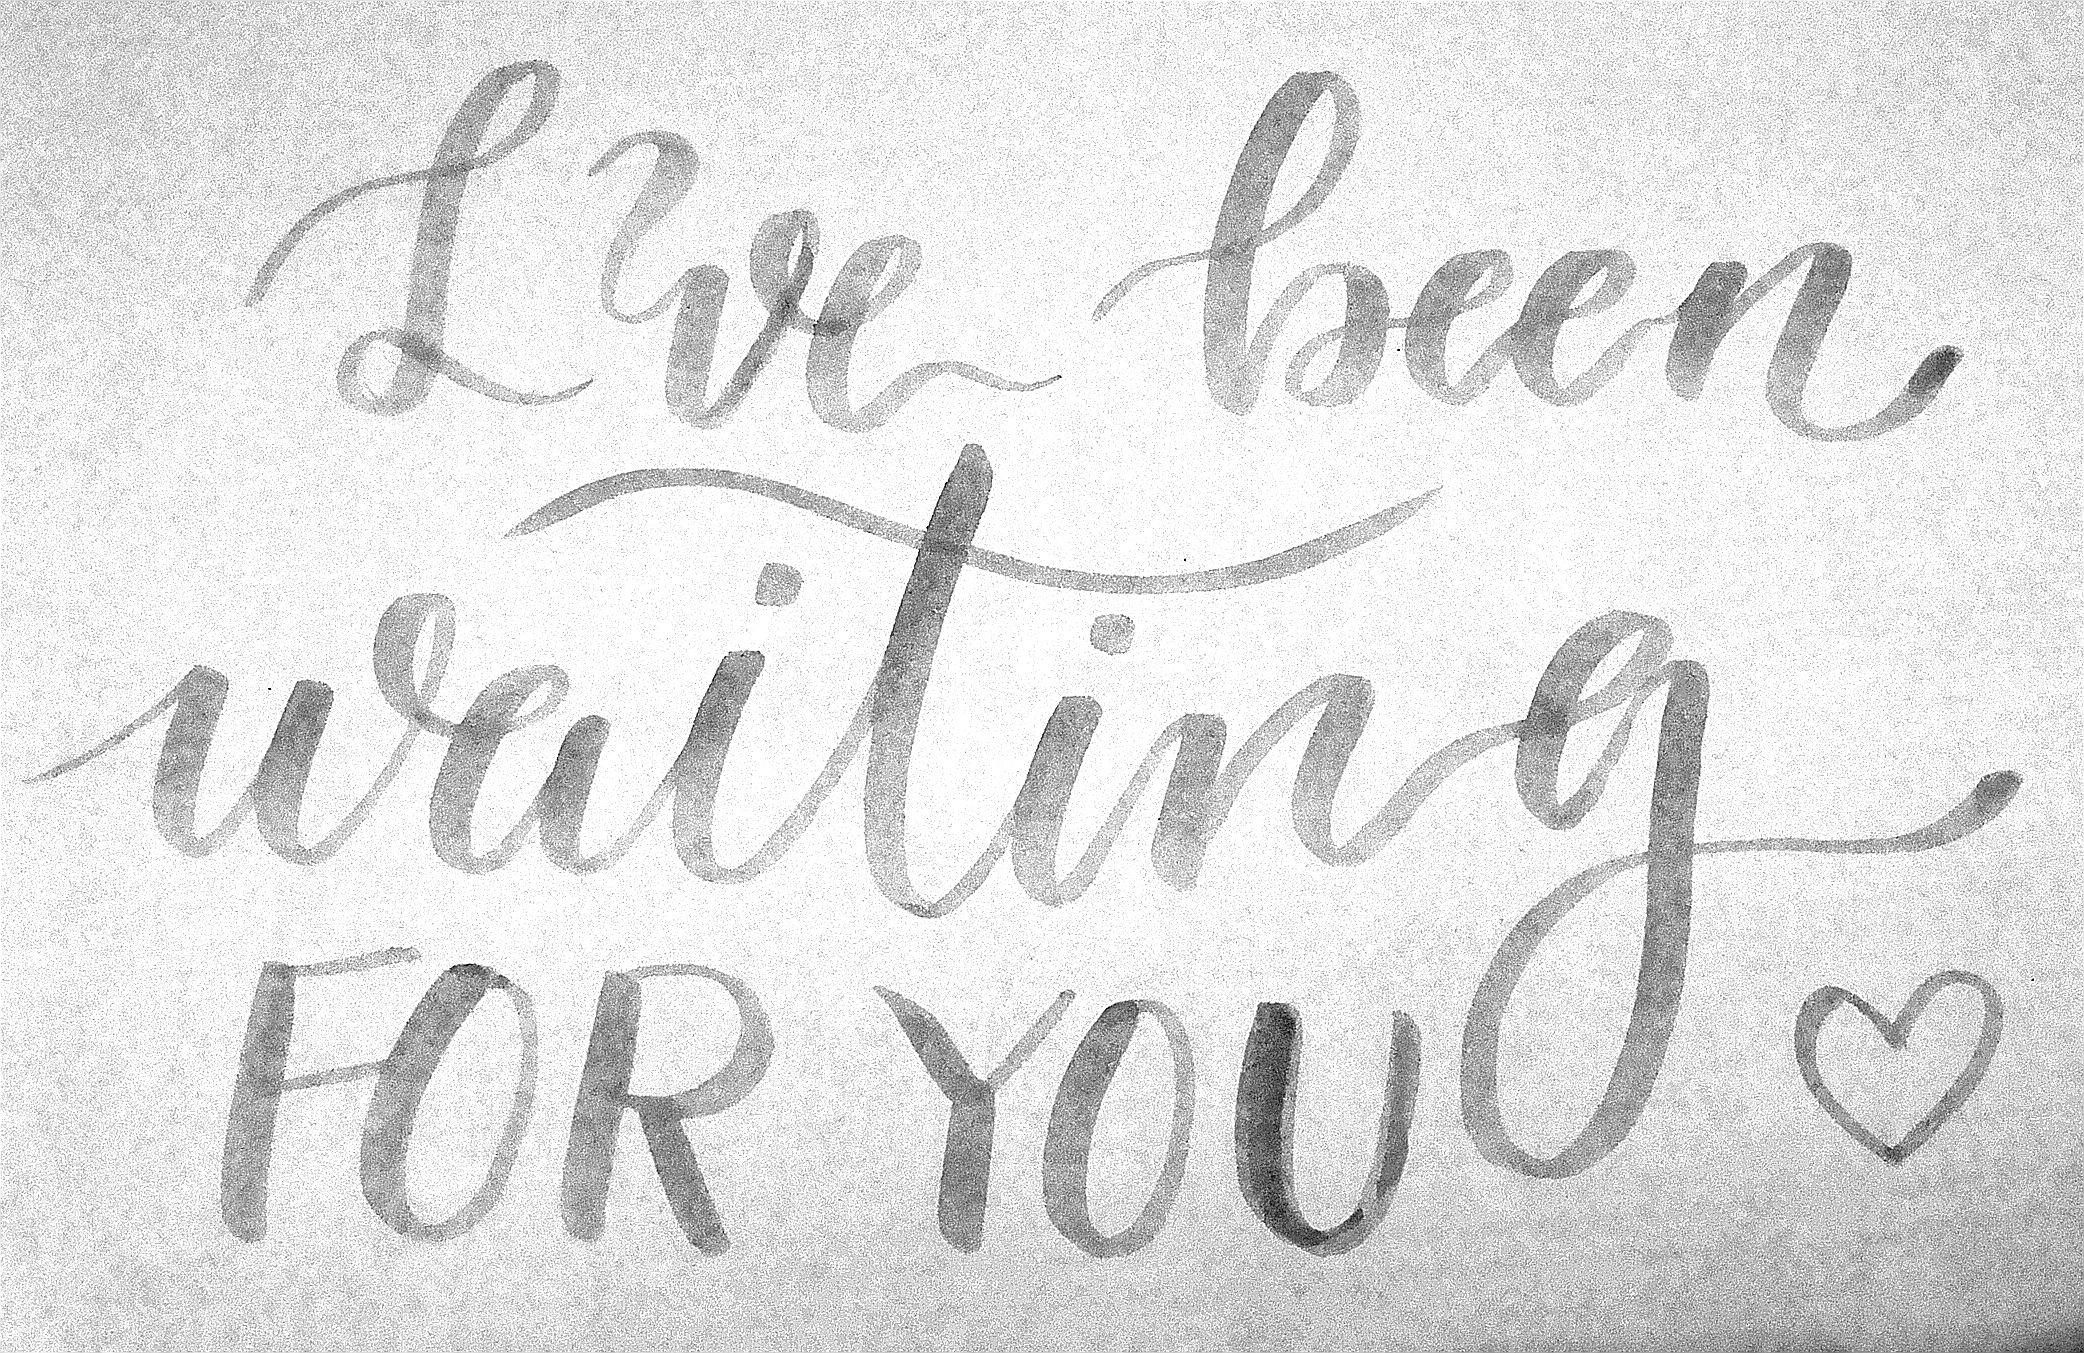 I've been
waiting
FOR YOU